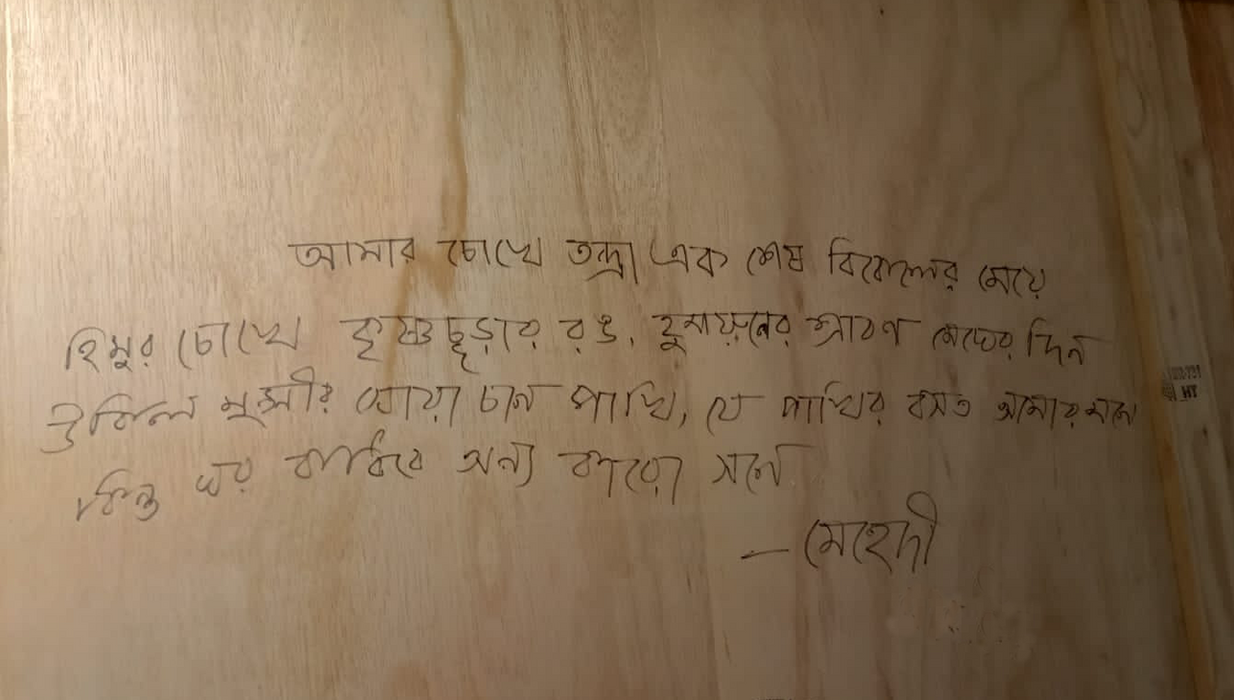 আমার চোখে তন্দ্রা এক শেষ বিকেলের মেয়ে
হিমুর চোখে কৃষ্ণচূড়ার রঙ, হুমায়ূনের শ্রাবণ মেঘের দিন
উকিল মুন্সীর শোয়া চান পাখি, যে পাখির বসত আমার মনে
কিন্তু ঘর বাধিবে অন্য কারো সনে
— মেহেদী